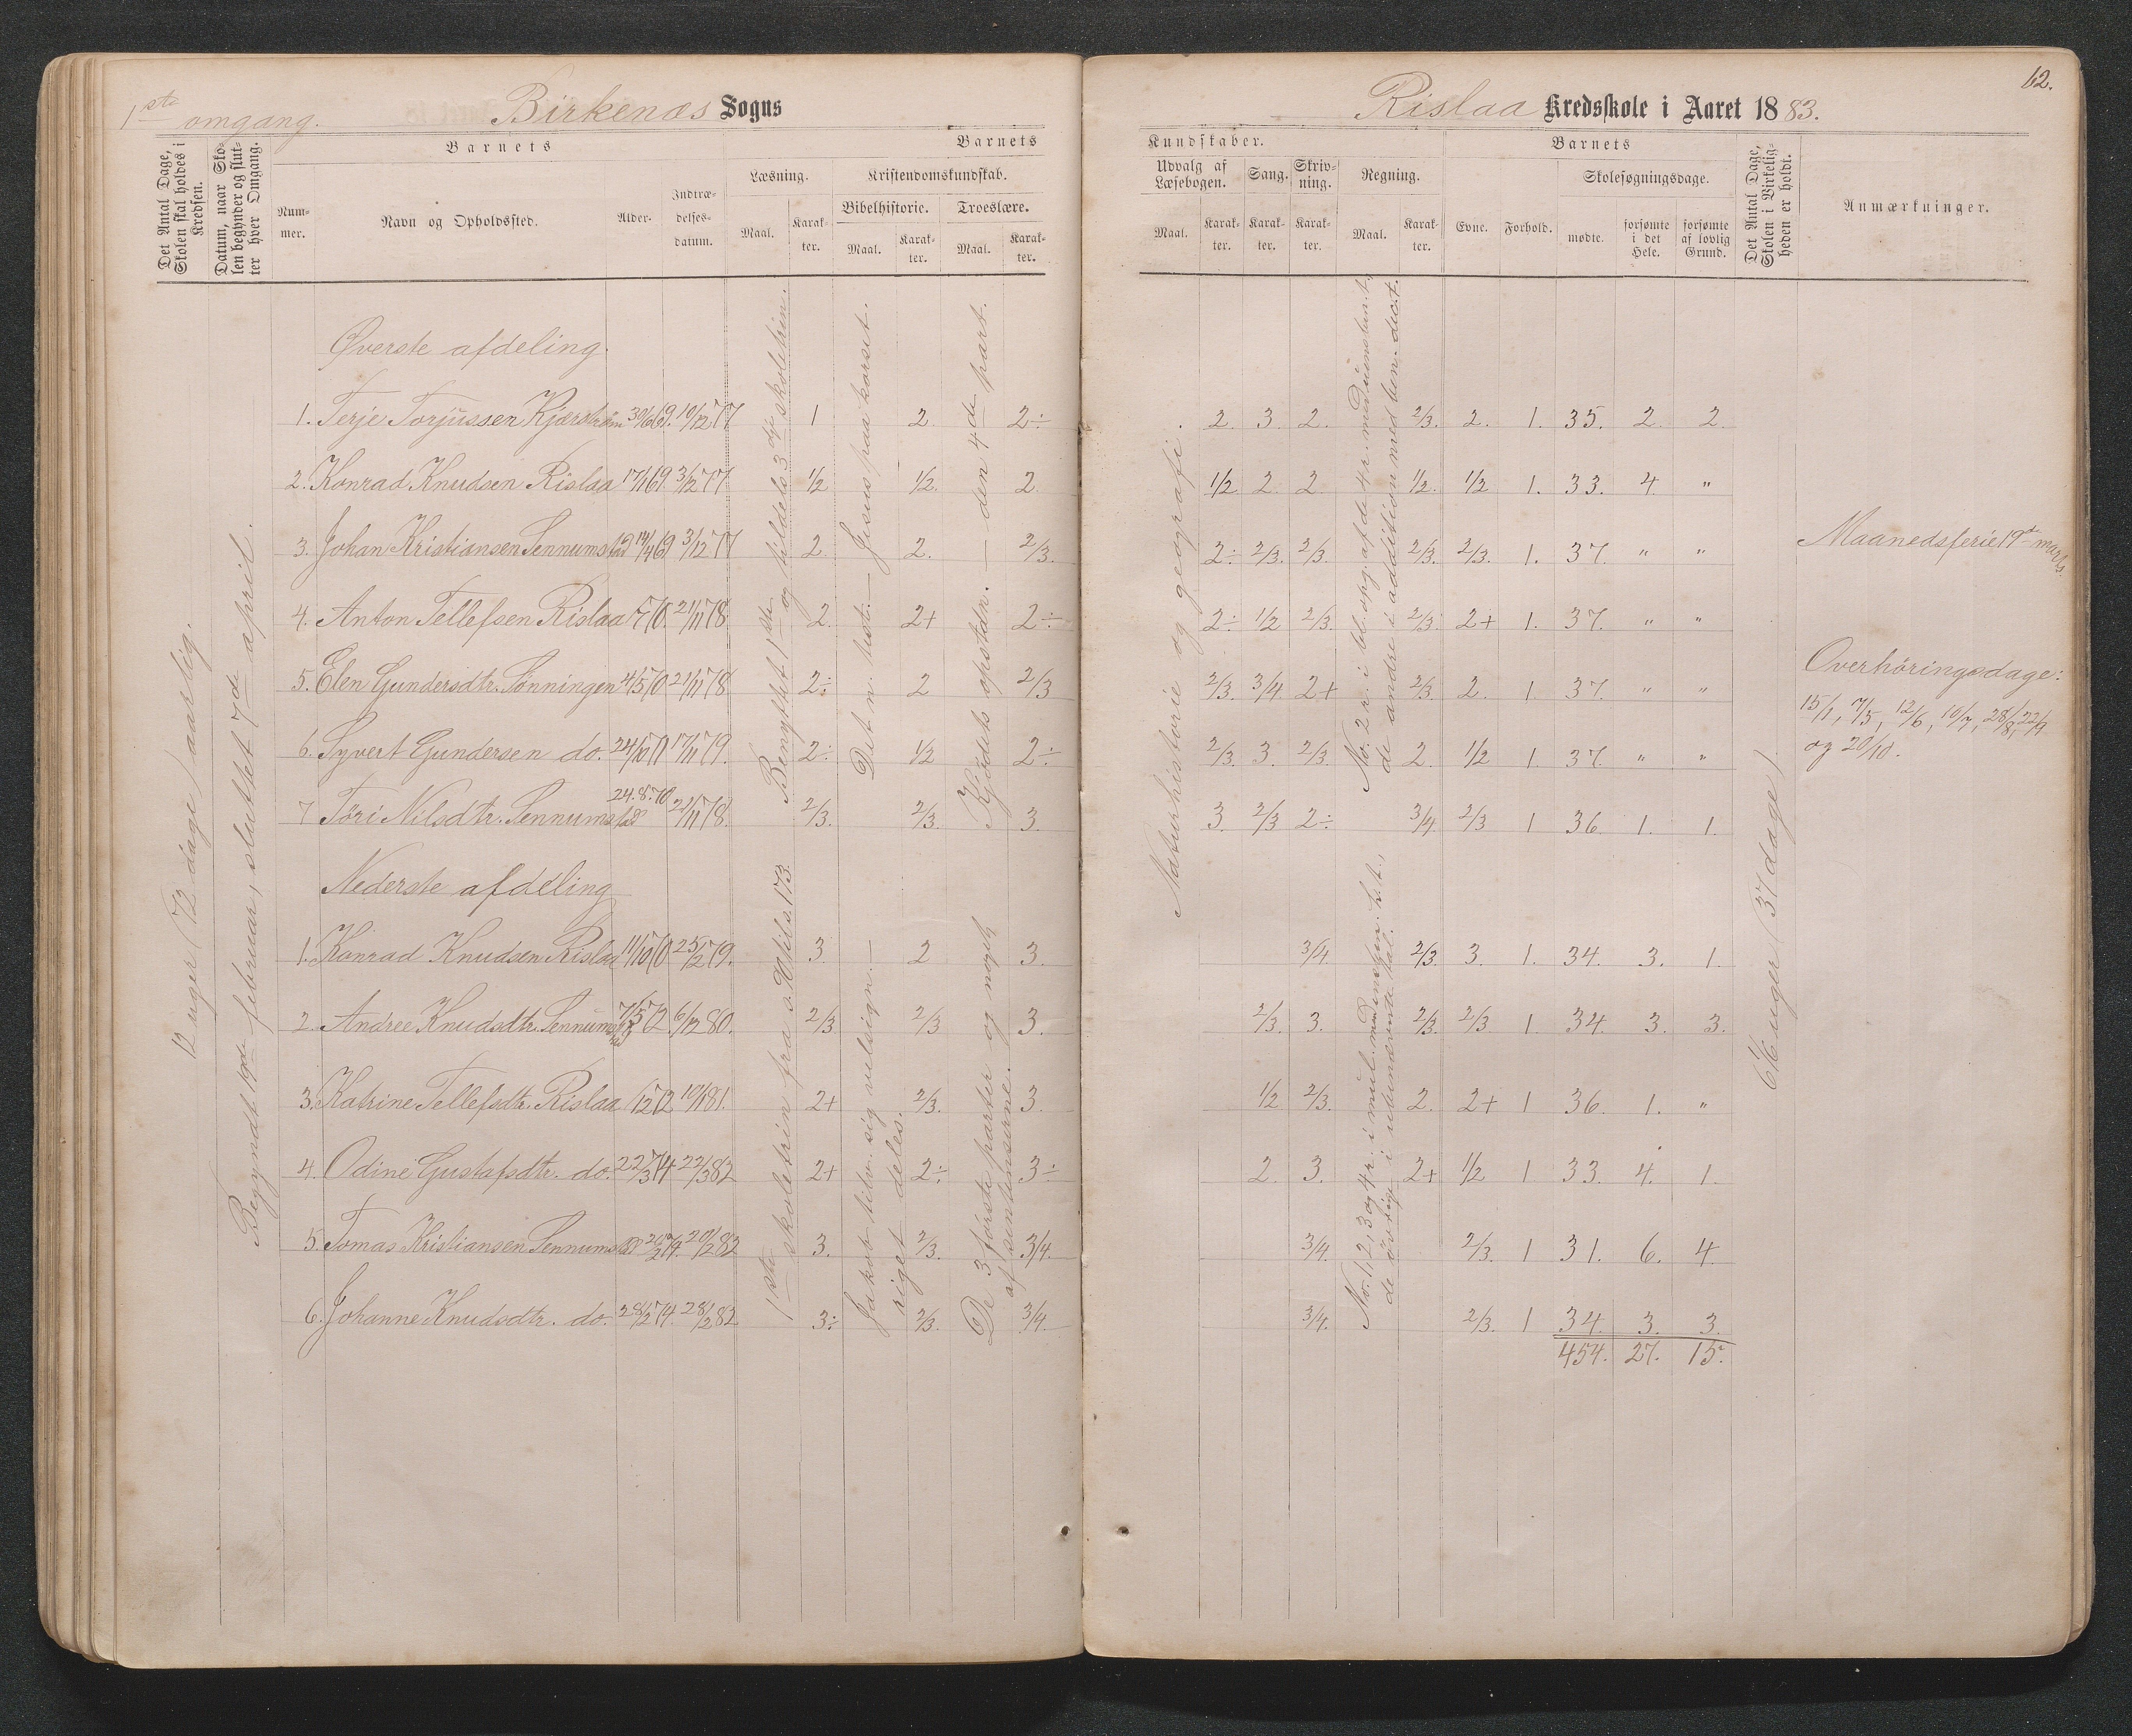 1ste omgang.
Birkenæs Sogns
Det Antal Dage, Skolen skal holdes i Kredsen.
Datum, naar Skolen begynder og slutter hver Omgang.
Barnets
Nummer.
Navn og Opholdssted.
Alder.
Indtrædelsesdatum.
Barnets
Læsning.
Maal.
Karakter.
Kristendomskundskab.
Bibelhistorie.
Maal.
Karakter.
Troeslære.
Maal.
Karakter.
12 uger (72 dage) aarlig.
Begyndt 19de februar, sluttet 7de april.
Øverste afdeling.
1. Terje Torjussen Kjærstrøm 30/6 69. 10/12 77 1 2 2÷
2. Konrad Knudsen Rislaa 17/1 69. 3/12 77 1/2 1/2. 2
3. Johan Kristiansen Sennumstad 14/4 69 3/12 77 2. 2. 2/3.
4. Anton Tellefsen Rislaa 70. 21/11 78 2. 2+ 2÷
5. Elen Gundersdtr. Tønningen 4/5 70 21/11 78 2÷ 2 2/3
6. Syvert Gundersen do. 17/11 79. 2÷ 1/2 2÷
7 Töri Nilsdtr. Sennumstad 24.8.70 21/11 78. 2/3. 2/3. 3.
Benyttet 1ste og tildels 3die skoletrin.
Det n. test. – Jesus paa korset.
Kjödets opstadn. – den 4de part.
Nederste afdeling
1. Konrad Knudsen Rislaa 11/10 70 25/2 79. 3. 2 3.
2. Andree Knudsdtr. Sennumstad 7/5 72. 6/12 80. 2/3 2/3 3.
3. Katrine Tellefsdtr. Rislaa /12 72 10/1 81. 2+ 2/3. 3.
4. Odine Gustafsdtr. do. 22/3 74 22/3 82 2+ 2÷ 3÷
5. Tomas Kristiansen Sennumstad 26/2 74. 20/2 82 3. 2/3. 3/4.
6. Johanne Knudsdtr. do. 28/2 74. 28/2 82 3÷ 2/3. 3/4.
1ste skoletrin fra s. 90 til s. 173.
Jakob tilsn. sig velsign. –
riget deles.
De 3 förste parter og noget
af sentenserne.
62.
Rislaa Kredsskole i Aaret 1883.
Kundskaber.
Udvalg af Læsebogen.
Maal.
Karakter.
Sang.
Karakter.
Skrivning.
Karakter.
Regning.
Maal.
Karakter.
Barnets
Evne.
Forhold.
Skolesøgningsdage.
mødte.
forsømte i det Hele.
forsømte af lovlig Grund.
Det Antal Dage, Skolen i Virkeligheden er holdt.
Anmærkninger.
Naturhistorie og geografi.
2. 3. 2. 2/3. 2. 1. 35. 2. 2.
1/2 2. 2. 1/2. 1/2 1. 33. 4. "
2÷ 2/3. 2/3. 2/3. 2/3. 1. 37. " "
2÷ 1/2 2/3. 2/3. 2+ 1. 37. " "
2/3. 3/4. 2+ 2/3. 2. 1 37. " "
2/3. 3. 2/3. 2. 1/2 1. 37. " "
3. 2/3 2÷ 3/4. 2/3 1 36. 1. 1.
de andre i addition med ben. dect.
3/4. 2/3. 3. 1. 34. 3. 1.
2/3. 3. 2/3. 2/3 1. 34. 3. 3.
1/2 2/3. 2. 2+ 1 36. 1. "
2. 3. 2+ 1/2 1 33. 4. 1.
3/4. 2/3. 1 31. 6. 4.
3/4. 2/3. 1 34. 3. 3.
454. 27. 15.
de övrige i unævnte tal.
6 1/6 uger (37 dage).
Maanedsferie 19de marts.
Overhöringsdage:
15/1, 7/5, 12/6, 10/7, 28/8, 22/9
og 20/10.